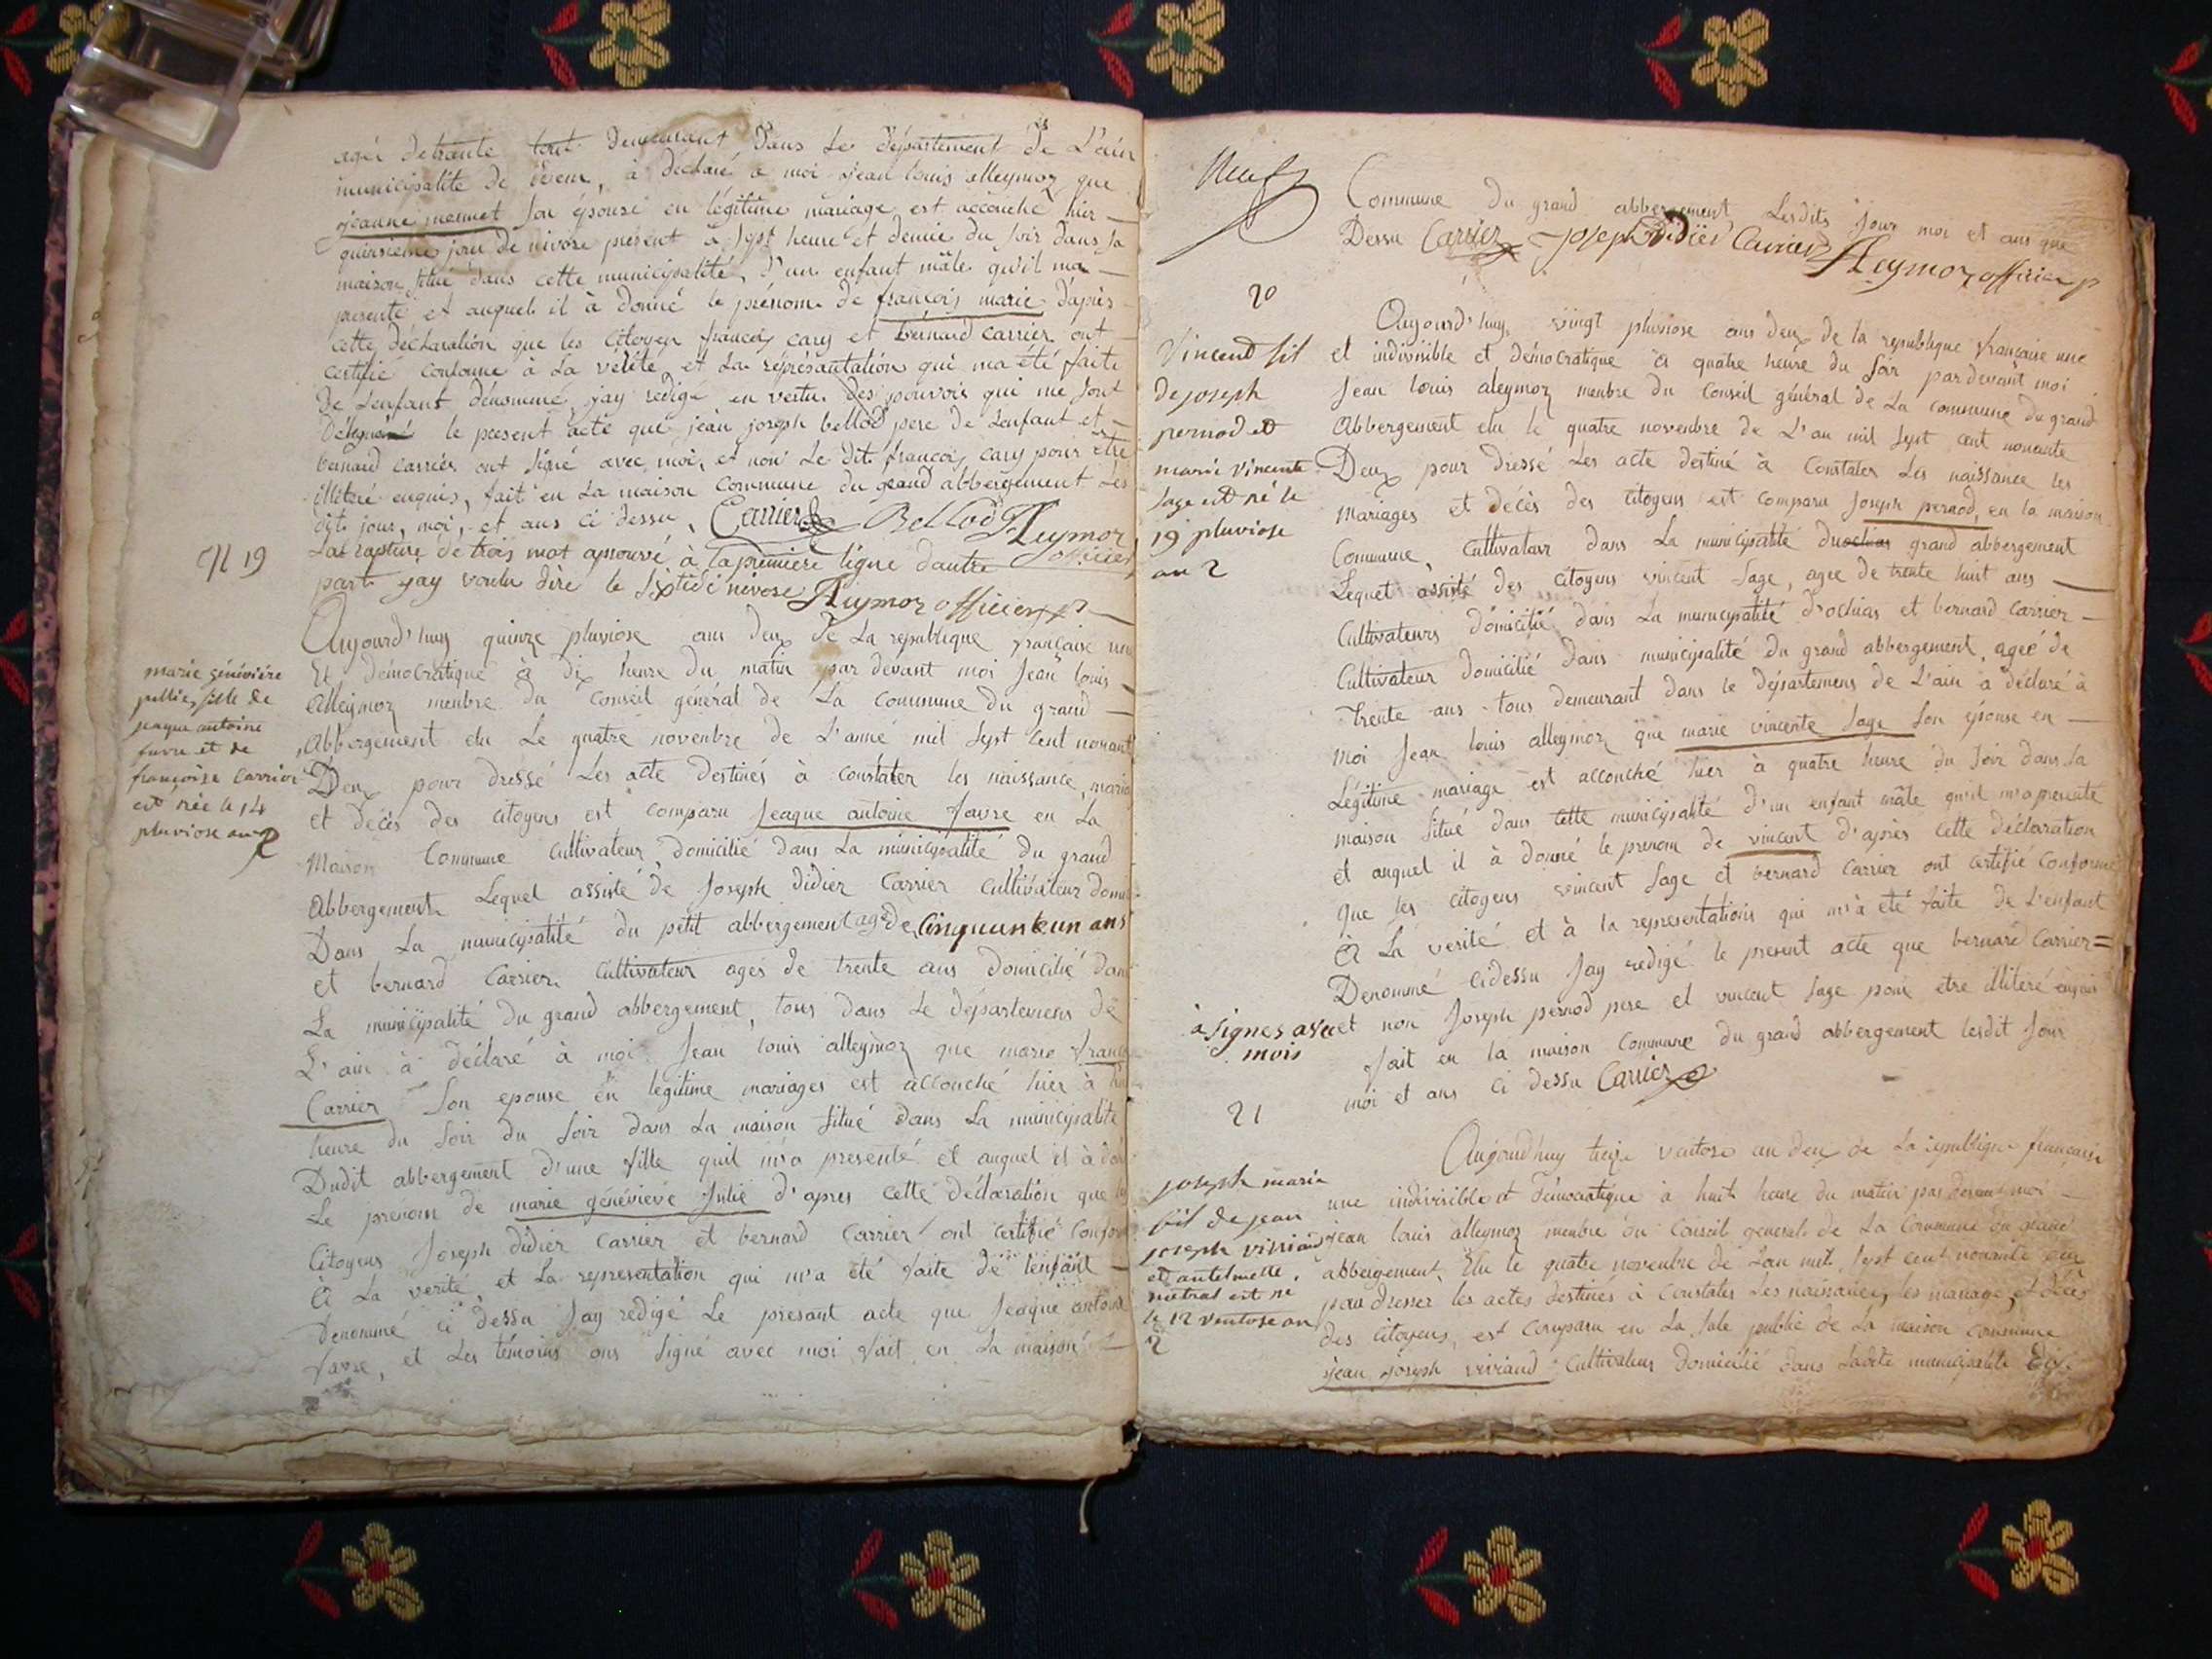 agé de trante tout demeurant dans le département de L'ain
municipalité de, à déclaré a moi jean louis alleymoz que
jeanne son épouse en légitime mariage est accouché hier
quinzième jour de nivose présent à sept heure et demie du soir dans sa
maison situé dans cette municipalité, d'un enfant mâle qu'il ma
présenté et auquel il à donné le prénom de françois marie d'après
cette déclaration que les citoyen françois cary et bernard carrier ont
certifié conforme à La vérité et La réprésantation qui ma été faite
De Lenfant dénommé jay rédigé en vertu des pouvoir qui me sont
Délégué le present acte que jean joseph bellod pere de Lenfant et
bernard carrier ont signé avec moi, et non Le dit françois cary pour être
illitéré enquis, fait en La maison Commune du grand abbergement Les
dit jour, moi, et ans ci dessu, Carrier Bellod Aleymoz
officier
N 19
La rapture de trois mot aprouvé à la première ligne dautre
part jay voulu dire le nivose Aleymoz officier p
Aujourd'huy quinze pluviose ans deux de La republique française une
Et démocratique à dix heure du matin par devant moi Jean louis
Alleymoz menbre du Conseil général de La Commune du grand
Abbergement elu Le quatre novenbre de L'anné mil sept cent nonant
Deux pour dressé Les acte destinés à constater les naissance, maria
et décès des citoyens est comparu Jeaque antoine favre en La
Maison Commune cultivateur domicilié dans La municipalité du grand
Abbergement Lequel assisté de Joseph didier Carrier cultivateur domi
Dans La municipalité du petit abbergement agé de Cinquante un ans
et bernard Carrier cultivateur agés de trente ans domicilié dan
La municipalité du grand abbergement, tous dans Le département de
L'ain à déclaré à moi Jean louis alleymoz que marie franç
Carrier Son epouse en legitime mariages est accouché hier à
heure du soir du soir dans La maison situé dans La municipalité
Dudit abbergement d'une fille quil m'a presenté et auquel il à do
Le prenom de marie généviève Julie d'apres cette déclaration que les
Citoyens Joseph didier Carrier et bernard Carrier ont certifié Confor
à La verité, et La representation qui m'a été faite de lenfant
Denommé ci dessu Jay redigé Le presant acte que Jeaque antoine
favre, et Les témoins ons signé avec moi fait en La maison
marie généviève
jullie, fille de
jeaque antoine
favre et de
françoise carrier
est née le 14
pluviose an 2
Neuf
Commune du grand abbergement Lesdits Jour moi et ans que
Dessu Carrier Joseph Didier Carrier Aleymoz officier p
20
Vincent fil
de joseph
pernod et
marie vincente
sage est né le
19 pluviose
an 2
Aujourd'huy vingt pluviose ans deux de la republique française une
et indivisible et démocratique à quatre heure du soir par devant moi
Jean louis aleymoz menbre du Conseil général de La commune du grand
Abbergement elu le quatre novenbre de L'an mil sept cent nonante
Deux pour dressé Les acte destiné à Constater Les naissance les
mariages et décès des citoyens est comparu Joseph pernod, en la maison
Commune, cultivateur dans La municipalité du grand abbergement
Lequel assisté des citoyens vincent Sage, agee de trente huit ans
Cultivateurs domicilié dans La municipalité d'ochias et bernard Carrier
Cultivateur domicilié dans municipalité du grand abbergement, ageé de
trente ans tous demeurant dans le département de L'ain a déclaré à
moi Jean louis alleymoz que marie vincente Sage Son épouse en
Légitime mariage est accouché hier à quatre heure du soir dans La
maison situé dans cette municipalité d'un enfant mâle qu'il m'a presenté
et auquel il à donné le prenom de vincent d'après cette déclaration
que les citoyens vincent Sage et bernard Carrier ont certifié Conforme
à La verité et à la representations qui m'a été faite de L'enfant
Denommé cidessu Jay redigé le present acte que bernard Carrier=
à signes avec moi et non Joseph pernod pere et vincent Sage pour etre illiteré enquis
fait en la maison commune du grand abbergement lesdit jour
moi et ans ci dessu Carrier
21
joseph marie
fil de jean
joseph vivriand
et antelmette
metral est né
le 12 ventose an
2
Aujourd'huy treize ventose an deux de La republique française
une indivisible et démocratique à huit heure du matin par devant moi
jean louis alleymoz menbre du Conseil general de La Commune du grand
abbergement, Elu le quatre novenbre de Lan mil sept cent nonante deux
pour dresser les actes destinés à Constater Les naissances, les mariage, et décès
des citoyens, est comparu en La sale public de La maison commune
jean joseph vivriand Cultivateur domicilié dans ladite municipalité